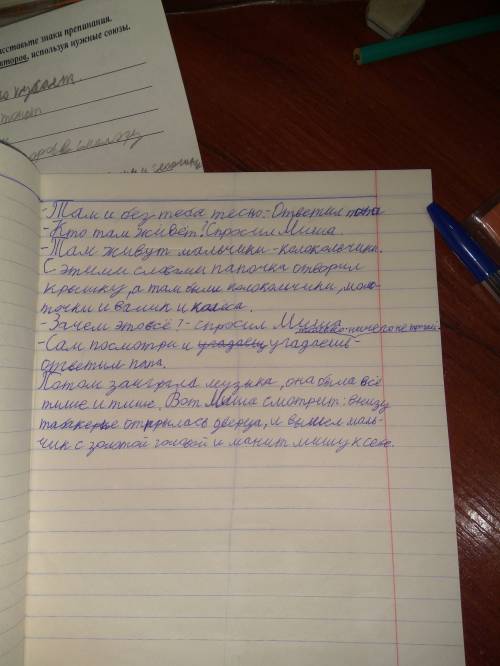 сставьте знаки препинания.
второв, используя нужные союзы.
- Там и без тебя тесно- Ответил папа
- Кто там живет? Спросил Миша.
- Там живут мальчики-колокольчики.
С этими словами папочка отворил
крышку, а там были колокольчики, моло-
точки и валик и колеса.
- Зачем это всё? - спросил Миша
- Сам посмотри и угадаешь-
ответил папа.
Потом заиграла музыка, она была всё
тише и тише. Вот Миша смотрит: внизу
табакерке открылась дверца, и вышел маль-
чик с золотой головой и манит мишу к себе.